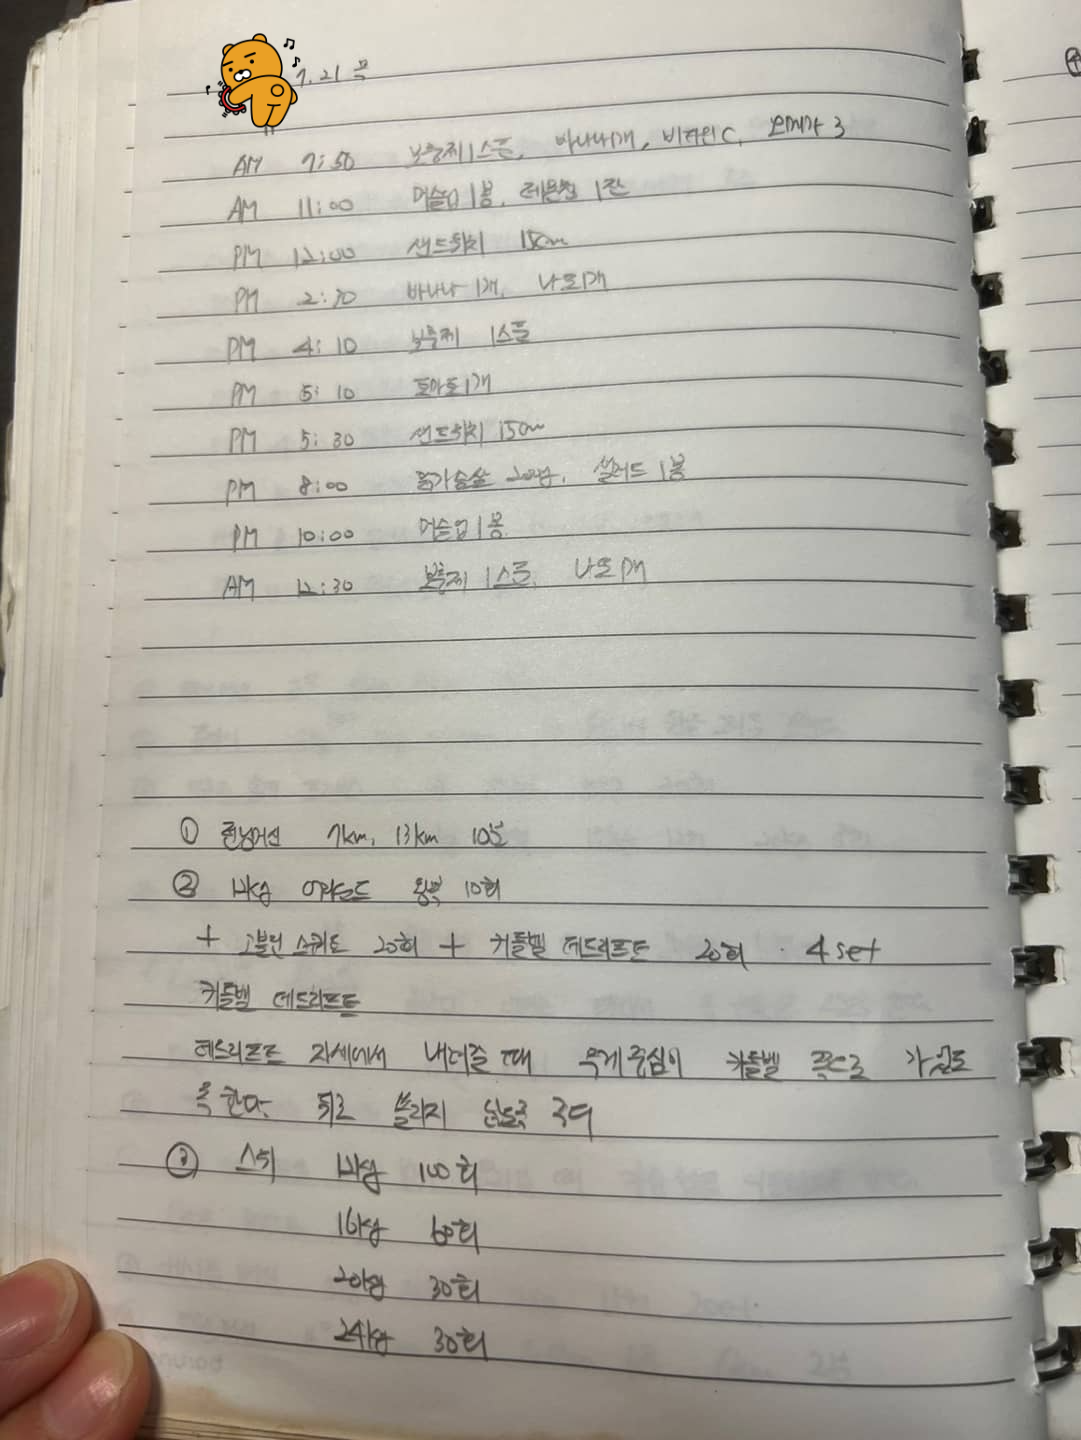 7. 21 목
AM 7:50 보충제 1스푼, 바나나 1개, 비타민C, 오메가 3
AM 11:00 머슬업 1봉, 레몬즙 1잔
PM 12:00 샌드위치 15cm
PM 2:30 바나나 1개, 낫또 1개
PM 4:10 보충제 1스푼
PM 5:10 토마토 1개
PM 5:30 샌드위치 15cm
PM 8:00 닭가슴살 200g, 샐러드 1봉
PM 10:00 머슬업 1봉
AM 12:30 보충제 1스푼, 낫또 1개
① 런닝머신 7km, 13km 10분
② 12kg 왕복 10회
+ 고블린 스쿼트 20회 + 커틀벨 데드리프트 20회 · 4set
커틀벨 데드리프트
데드리프트 자세에서 내려줄 때 무게중심이 커틀벨 쪽으로 가도
록 한다. 뒤로 쏠리지 않도록 주의
③ 스윙 12kg 100회
16kg 60회
20kg 30회
24kg 30회